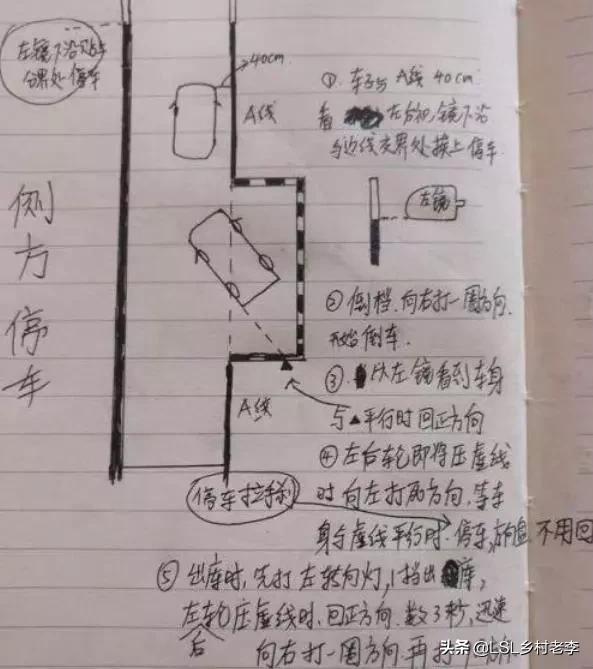 左镜下沿
停车
40cm
A线
侧方停车
① 车子与 A线 40cm.
看 左后视镜下沿
与边线交界处接上停车.
左镜
② 倒档.向右打一圈方向.
开始倒车.
③ 从左镜看到车身
与▲平行时回正方向
A线
④ 左后轮即将压虚线
时 向左打两方向,等车
身与虚线平行时.停车,方向盘 不用回
停车拉手刹
⑤ 出库时,先打左转向灯,1挡出库,
左后轮压虚线时.回正方向.数3秒,迅速
向右打一圈方向.再打
头条 @LSL乡村老李